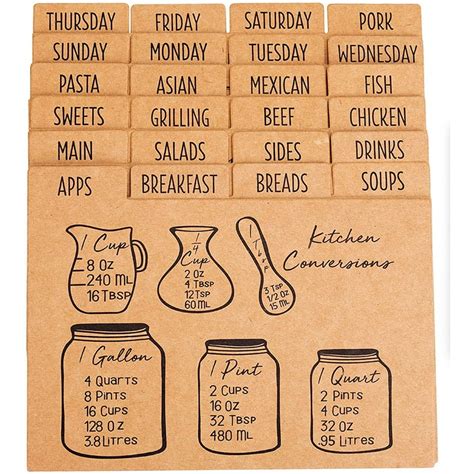 THURSDAY FRIDAY SATURDAY PORK
SUNDAY MONDAY TUESDAY WEDNESDAY
PASTA ASIAN MEXICAN FISH
SWEETS GRILLING BEEF CHICKEN
MAIN SALADS SIDES DRINKS
APPS BREAKFAST BREADS SOUPS
1 Cup
8 OZ
240 ML
16 TBSP
1/4 Cup
2 OZ
4 TBSP
12 TSP
60 ML
1 Tbsp
3 TSP
1/2 OZ
15 ML
Kitchen
Conversions
1 Gallon
4 QUARTS
8 PINTS
16 CUPS
128 OZ
3.8 LITRES
1 Pint
2 CUPS
16 OZ
32 TBSP
480 ML
1 Quart
2 PINTS
4 CUPS
32 OZ
.95 LITRES